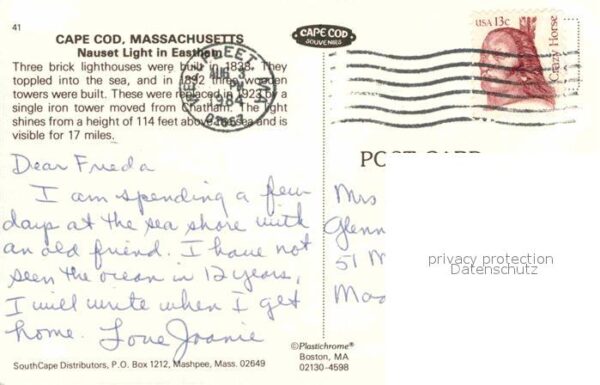 41
CAPE COD, MASSACHUSETTS
Nauset Light in Eastham
Three brick lighthouses were built in 1838. They
toppled into the sea, and in 1892 three wooden
towers were built. These were replaced in 1923 by a
single iron tower moved from Chatham. The light
shines from a height of 114 feet above the sea and is
visible for 17 miles.
WELLFLEET, MA
AUG 3
PM
1984
02667
CAPE COD
SOUVENIRS
USA 13c
Crazy Horse
POST CARD
Dear Frieda
I am spending a few
days at the sea shore with
an old friend. I have not
seen the ocean in 12 years,
I will write when I get
home. Love Joanie
Mrs
Glenn
51 M
Mad
privacy protection
Datenschutz
©Plastichrome®
Boston, MA
02130-4598
SouthCape Distributors, P.O. Box 1212, Mashpee, Mass. 02649